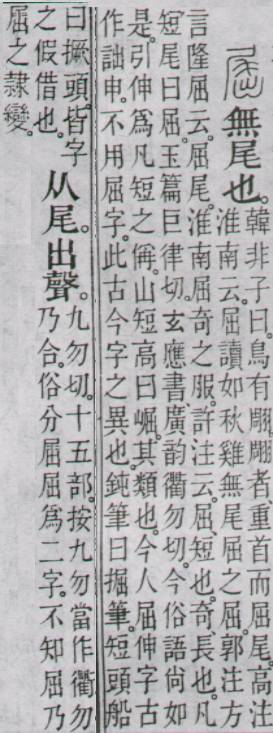 屈無尾也。
韓非子曰。鳥有翢翢者。重首而屈尾。高注
淮南云。屈讀如秋雞無尾屈之屈。郭注方
言隆屈云。屈尾。淮南屈奇之服。許注云。屈、短也。奇、長也。凡
短尾曰屈。玉篇巨律切。玄應書廣韵衢勿切。今俗語尚如
是。引伸爲凡短之偁。山短高曰崛。其類也。今人屈伸字古
作詘申。不用屈字。此古今字之異也。鈍筆曰掘筆。短頭船
曰撅頭。皆字
之假借也。
从尾。出聲。
九勿切。十五部。按九勿當作衢勿
乃合。俗分屈屈爲二字。不知屈乃
屈之隸變。